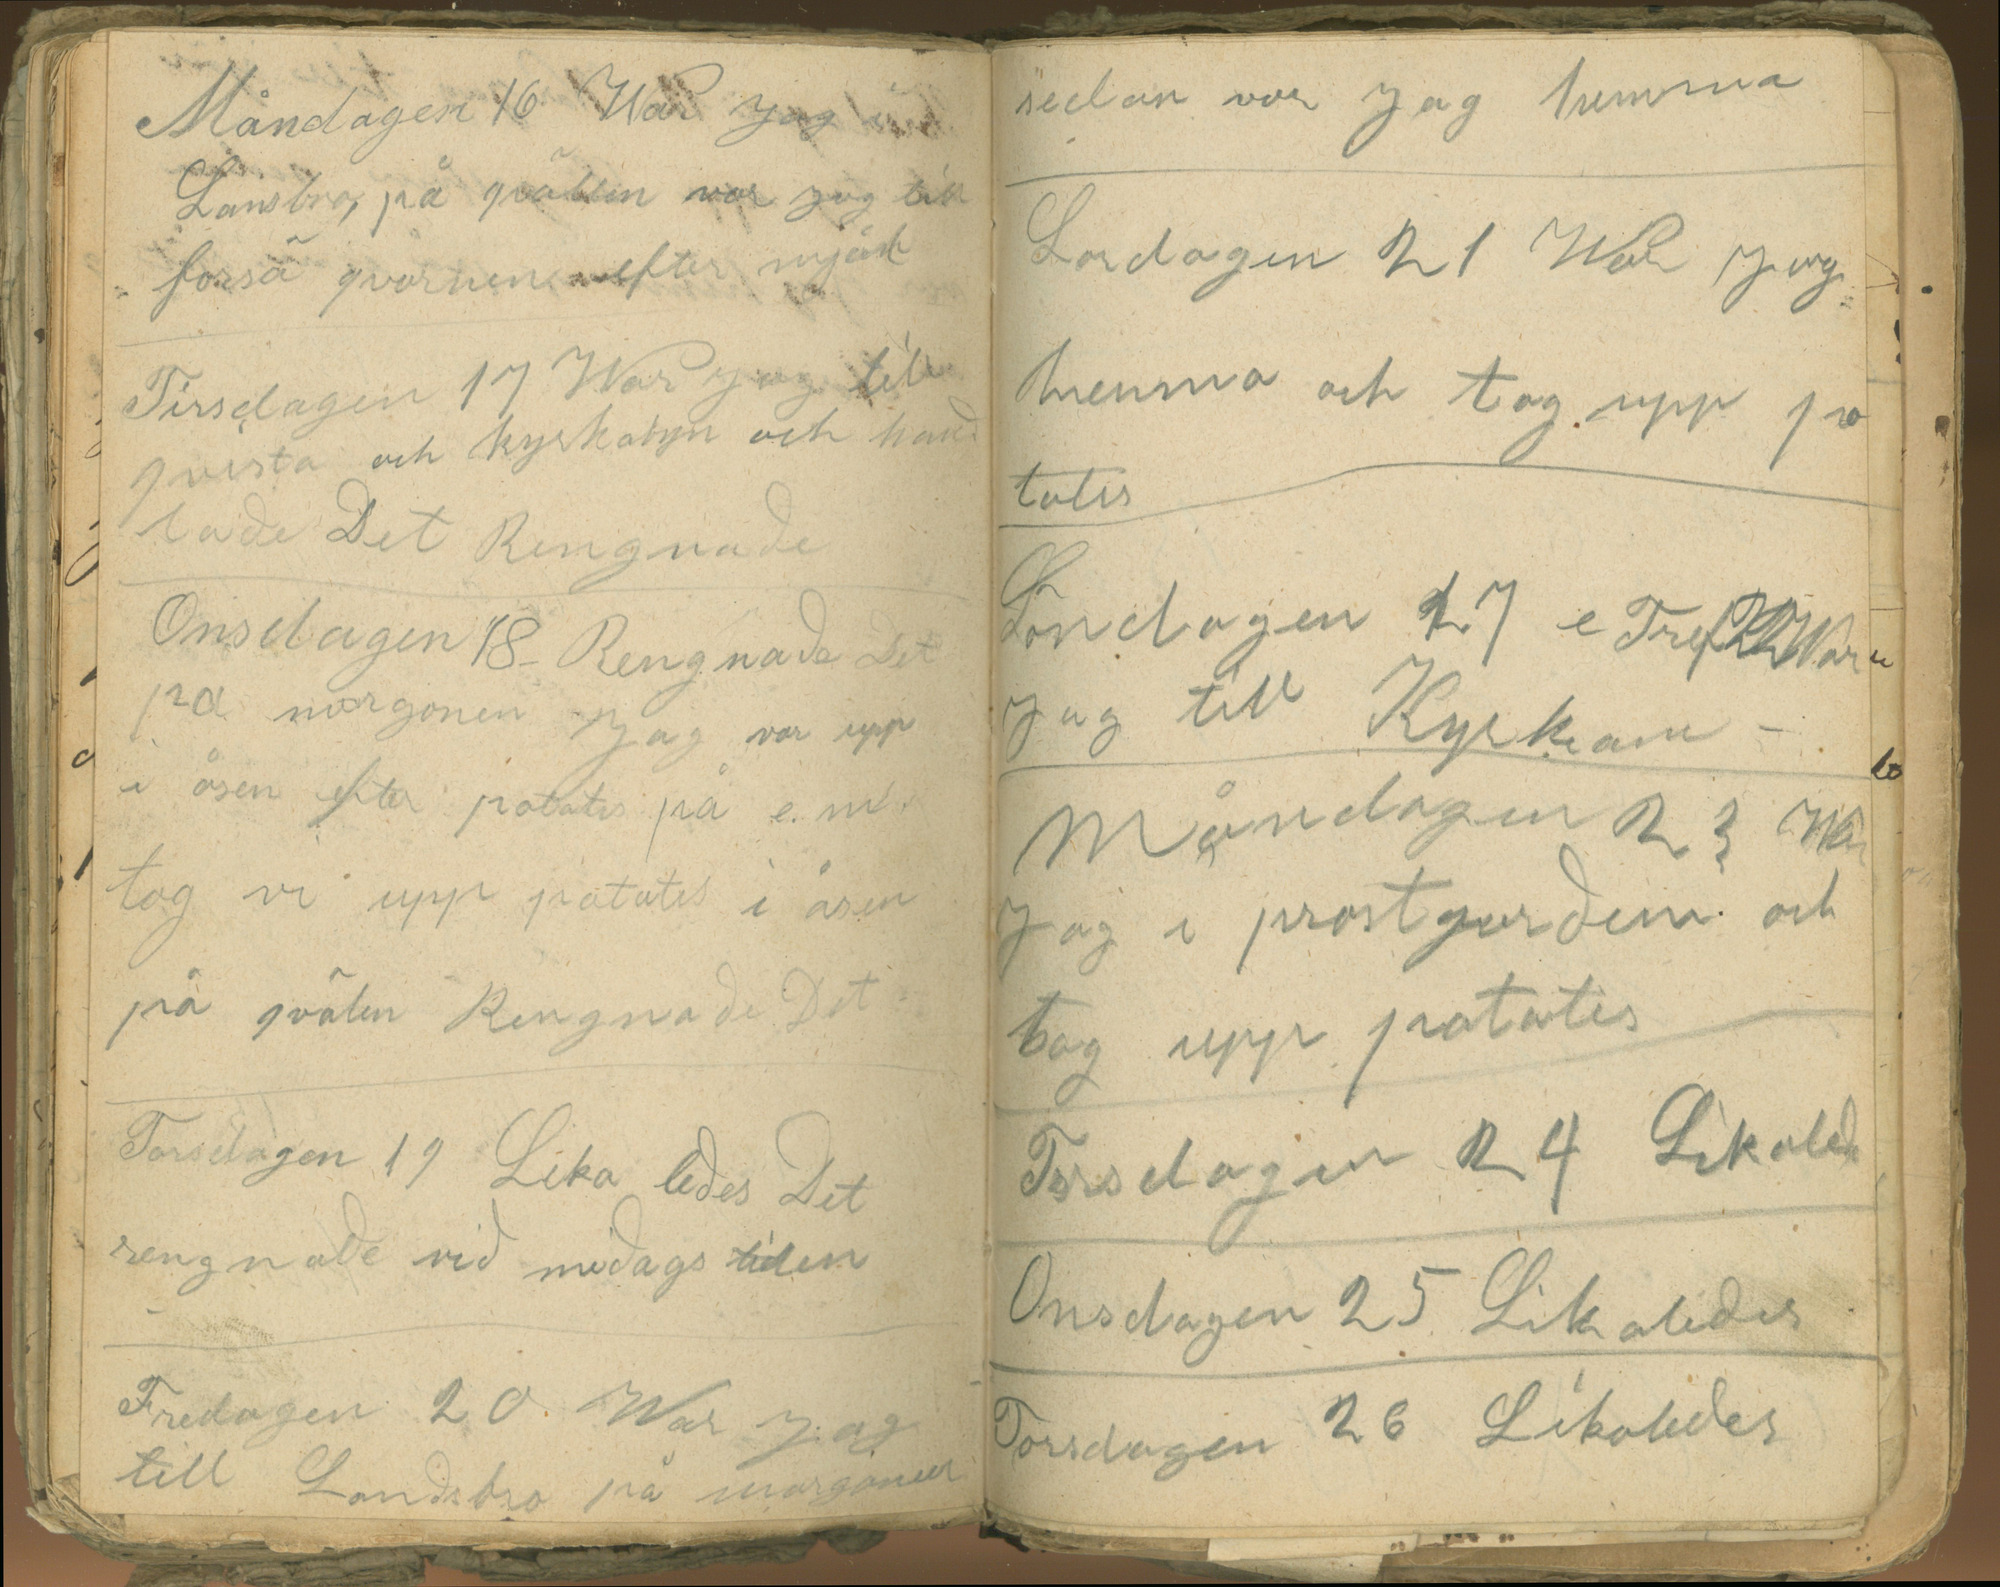 Måndagen 16 War jag i
Lansbro, på qvällen var jag till
forså qvarnen efter mjöl
Tirsdagen 17 War jag till
qvista och kyrkobyn och hand
lade Det Rengnade
Onsdagen 18 - Rengnade Det
på morgonen Jag var upp
i åsen efter potatis på e. m.
tog vi upp potatis i åsen
på qvälen Rengnade Det
Torsdagen 19 Lika ledes Det
rengnade vid midags tiden
Fredagen 20. War jag
till Landsbro på morgonen
sedan var jag hemma
Lordagen 21 War jag
hemma och tog upp po
tatis
Söndagen 17 e Tref War
jag till Kyrkan -
Måndagen 23 War
jag i prostgården och
tog upp potatis
Tirsdagen 24 Likaled
Onsdagen 25 Likaledes
Torsdagen 26 Likaledes